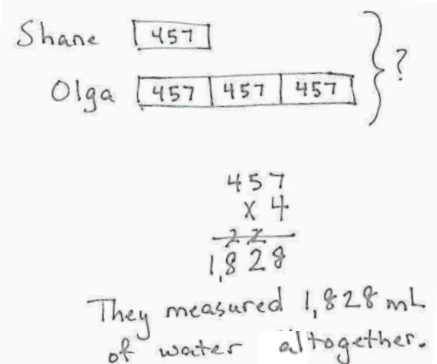 Shane 457
?
Olga 457 457 457
457
x 4
22
1,828
They measured 1,828 mL
of water altogether.